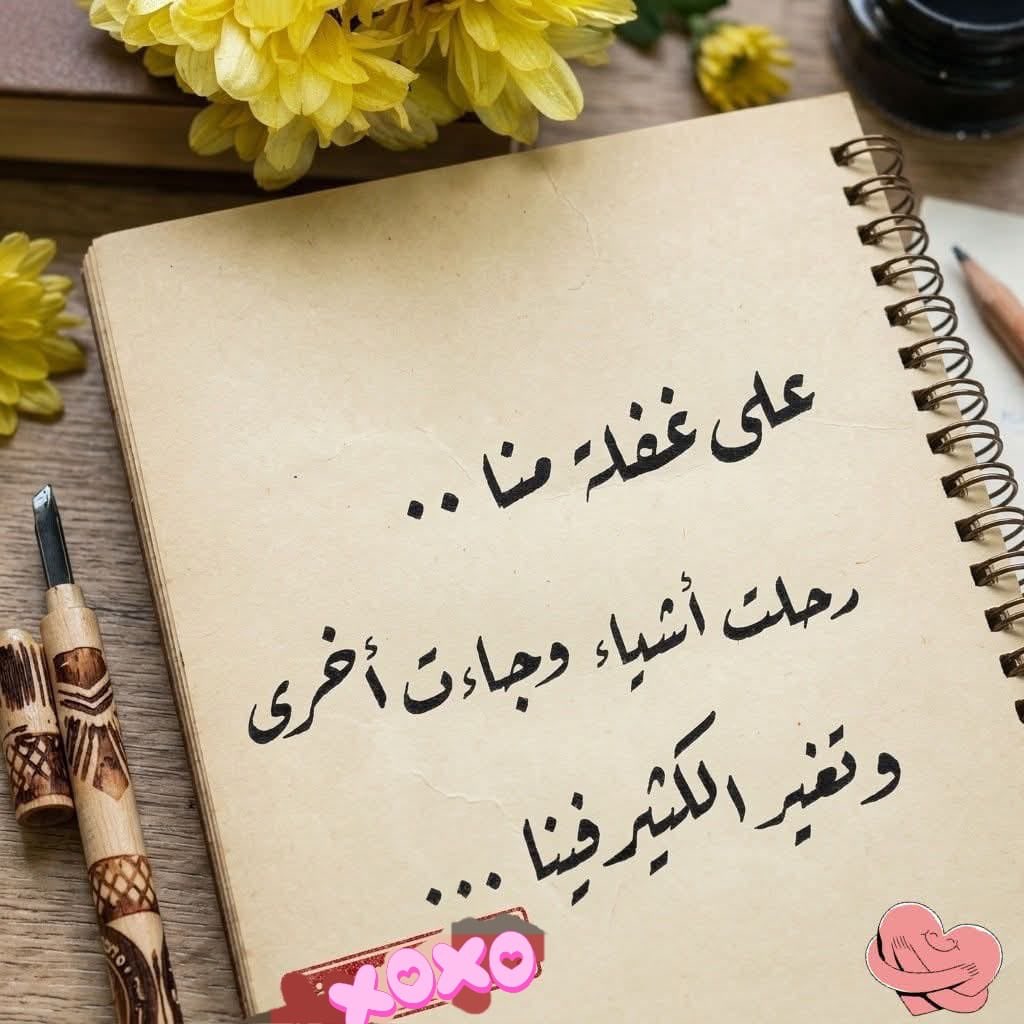 على غفلة منا ..
رحلت أشياء وجاءت أخرى
وتغير الكثير فينا ...
XOXO